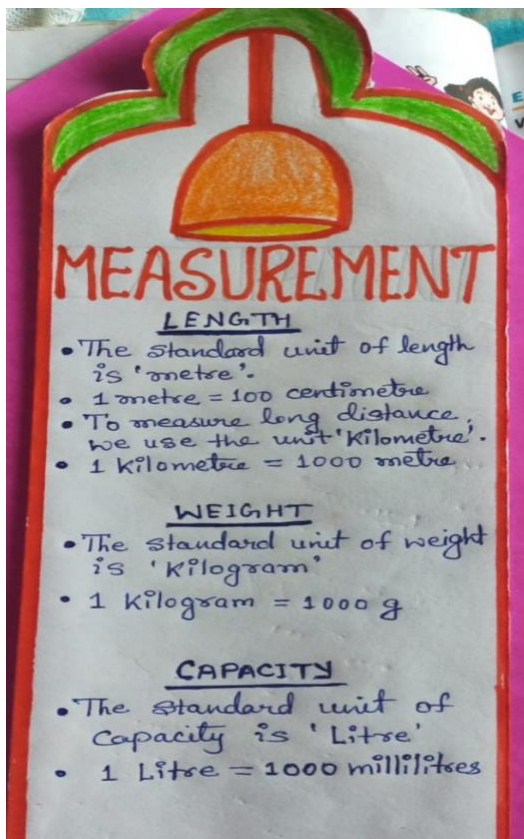 MEASUREMENT
LENGTH
• The standard unit of length
is 'metre'.
• 1 metre = 100 centimetre
• To measure long distance,
we use the unit 'Kilometre'.
• 1 kilometre = 1000 metre
WEIGHT
• The standard unit of weight
is 'Kilogram'
• 1 Kilogram = 1000 g
CAPACITY
• The standard unit of
Capacity is 'Litre'
• 1 Litre = 1000 millilitres